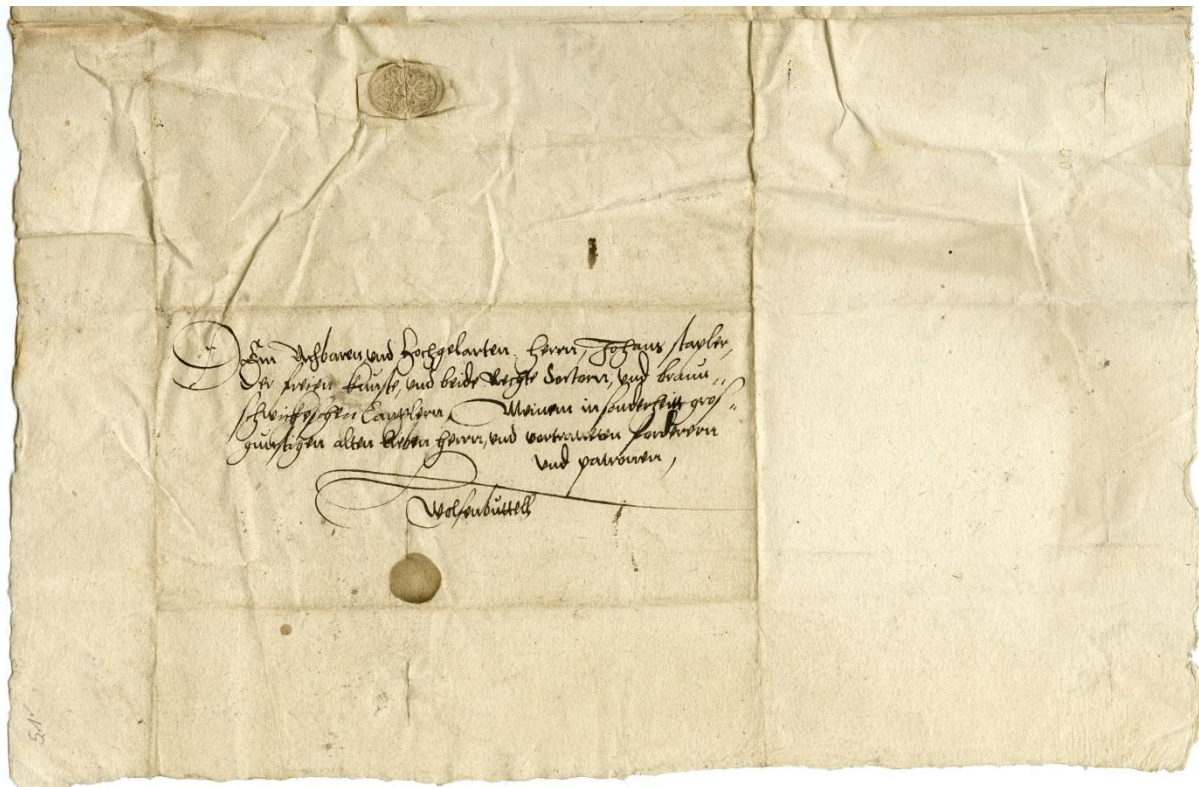 Dem Achbaren, und Hochgelarten, Herrn, Johans stapler,
der freien kunste, und beide Rechte Doctorn, und braun-
schwickeschen Cantzlern, Meinem in sonderheitt gros-
gunstigen alten lieben herrn, und vortraueten forderern
und patronen,
Wolfenbuttell
51